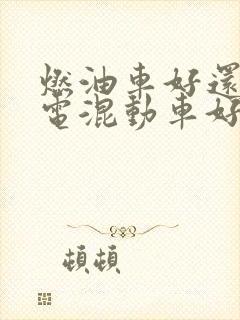 燃油車好還
電混動車好
頓頓